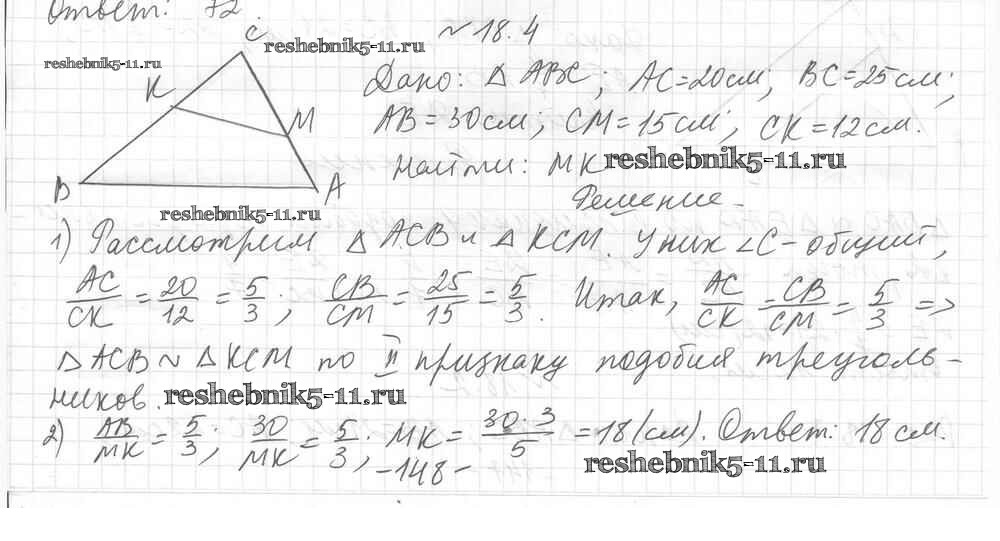 Ответ: 72.
C
reshebnik5-11.ru
№ 18.4
reshebnik5-11.ru
K
Дано: △ ABC; AC=20см; BC=25см;
M
AB=30см; CM=15см; CK=12см.
Найти: MK
reshebnik5-11.ru
B
A
Решение
reshebnik5-11.ru
1) Рассмотрим △ ACB и △ KCM. У них ∠C - общий,
AC/CK = 20/12 = 5/3; CB/CM = 25/15 = 5/3. Итак, AC/CK = CB/CM = 5/3 =>
△ ACB ~ △ KCM по II признаку подобия треуголь-
ников.
reshebnik5-11.ru
2) AB/MK = 5/3; 30/MK = 5/3; MK = 30·3/5 = 18 (см). Ответ: 18 см.
-148-
reshebnik5-11.ru